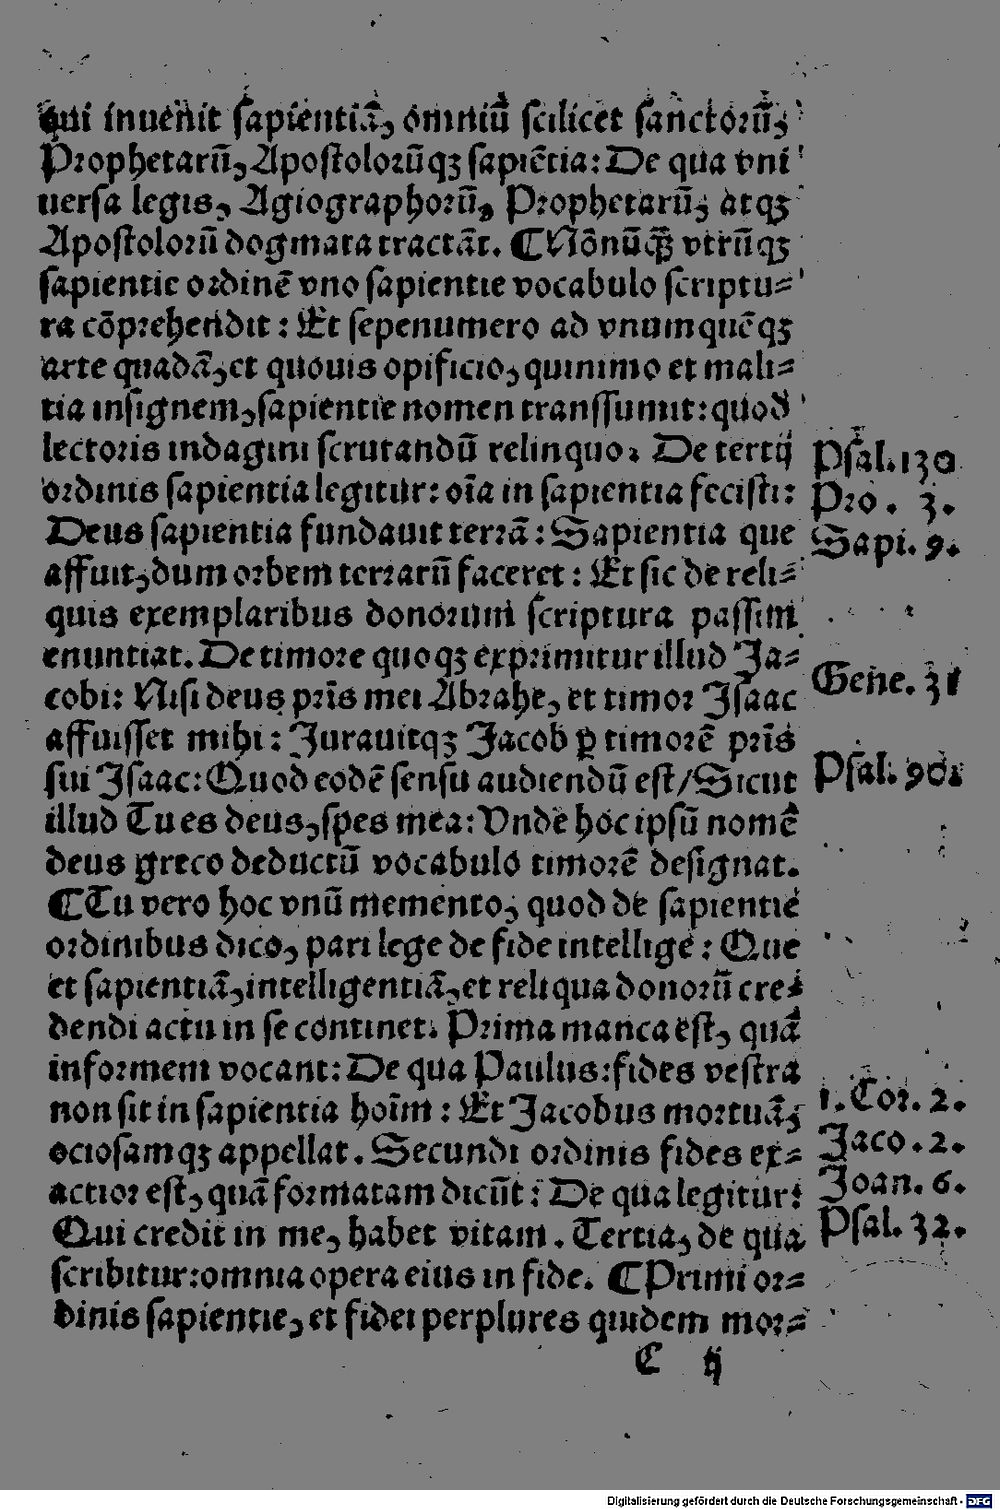 qui inuenit sapientiā, omniū scilicet sanctorū,
Prophetarū, Apostolorūqꝫ sapiētia: De qua vni
uersa legis, Agiographorū, Prophetarū, atqꝫ
Apostolorū dogmata tractāt. ¶ Nōnūqꝫ vtrūqꝫ
sapientie ordinē vno sapientie vocabulo scriptu⸗
ra cōprehendit: Et sepenumero ad vnumquēqꝫ
arte quadā, et quouis opificio, quinimo et mali⸗
tia insignem, sapientie nomen transsumit: quod
lectoris indagini scrutandū relinquo. De tertij
ordinis sapientia legitur: oīa in sapientia fecisti:
Deus sapientia fundauit terrā: Sapientia que
affuit, dum orbem terrarū faceret: Et sic de reli⸗
quis exemplaribus donorum scriptura passim
enuntiat. De timore quoqꝫ exprimitur illud Ja⸗
cobi: Nisi deus prīs mei Abrahe, et timor Jsaac
affuisset mihi: Jurauitqꝫ Jacob ꝑ timorē prīs
sui Jsaac: Quod eodē sensu audiendū est/Sicut
illud Tu es deus, spes mea: Vnde hoc ipsū nomē
deus greco deductū vocabulo timorē designat.
¶ Tu vero hoc vnū memento, quod de sapientie
ordinibus dico, pari lege de fide intellige: Que
et sapientiā, intelligentiā, et reliqua donorū cre⸗
dendi actu in se continet. Prima manca est, quā
informem vocant: De qua Paulus: fides vestra
non sit in sapientia hoīm: Et Jacobus mortuā,
ociosamqꝫ appellat. Secundi ordinis fides ex⸗
actior est, quā formatam dicūt: De qua legitur:
Qui credit in me, habet vitam. Tertia, de qua
scribitur: omnia opera eius in fide. ¶ Primi or⸗
dinis sapientie, et fidei perplures quidem mor⸗
C ij
Psal. 130
Pro. 3.
Sapi. 9.
Gene. 31
Psal. 90.
1. Cor. 2.
Jaco. 2.
Joan. 6.
Psal. 32.
Digitalisierung gefördert durch die Deutsche Forschungsgemeinschaft - DFG